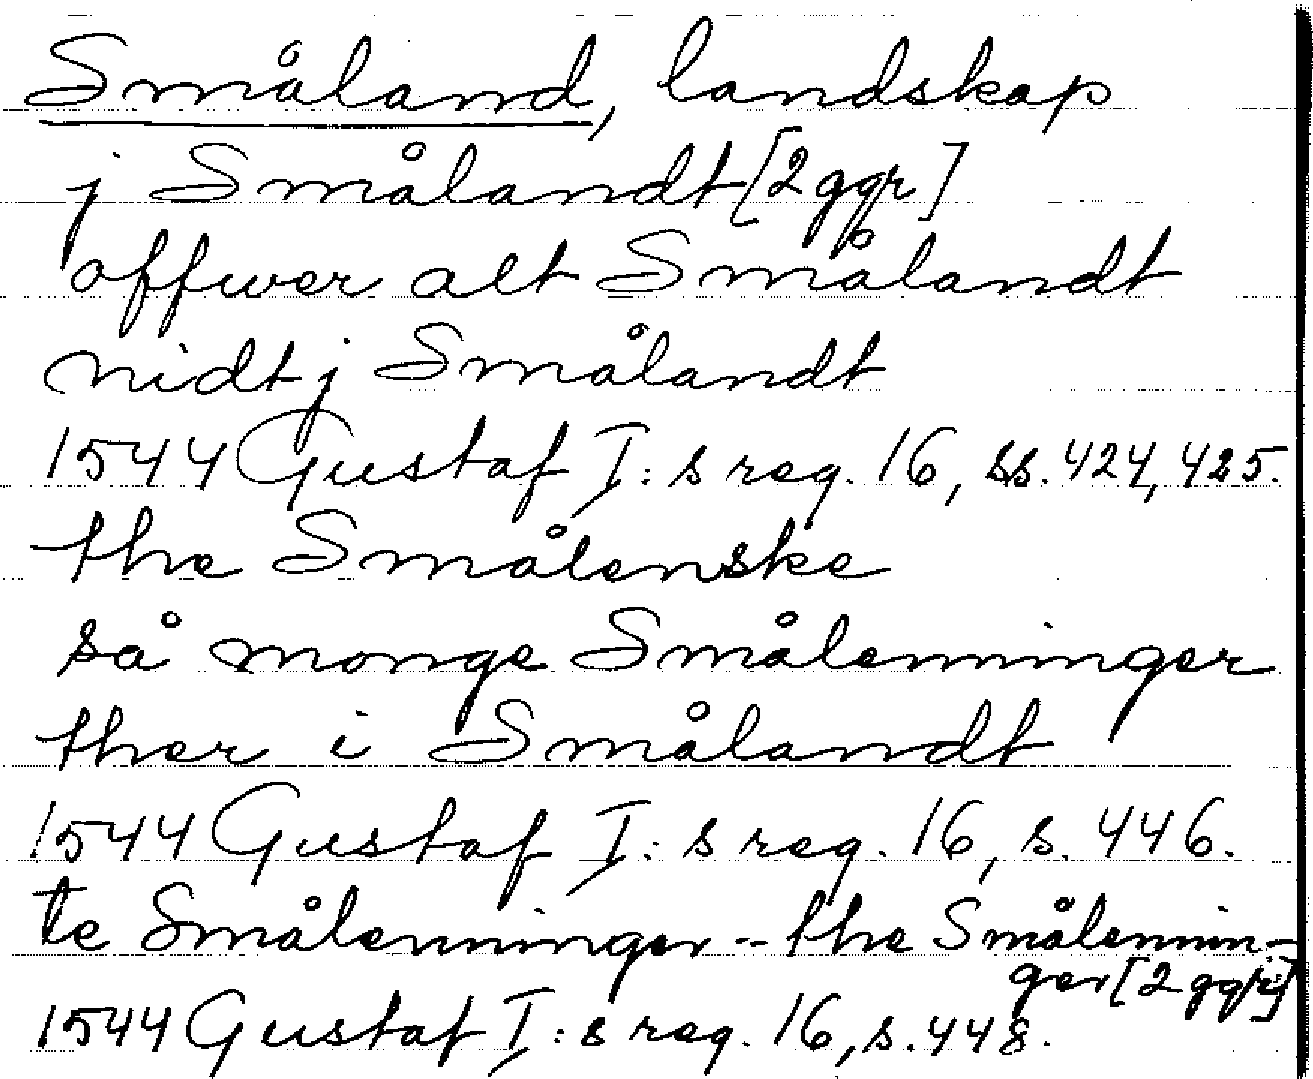 Småland, landskap
j Smålandt [2 ggr]
offwer alt Smålandt
nidt j Smålandt
1544 Gustaf I:s reg. 16, ss. 424, 425.
the Smålenske
så monge Smålenninger
ther i Smålandt
1544 Gustaf I:s reg. 16, s. 446.
te Smålenninger -- the Smålennin-
ger [2 ggr]
1544 Gustaf I:s reg. 16, s. 448.